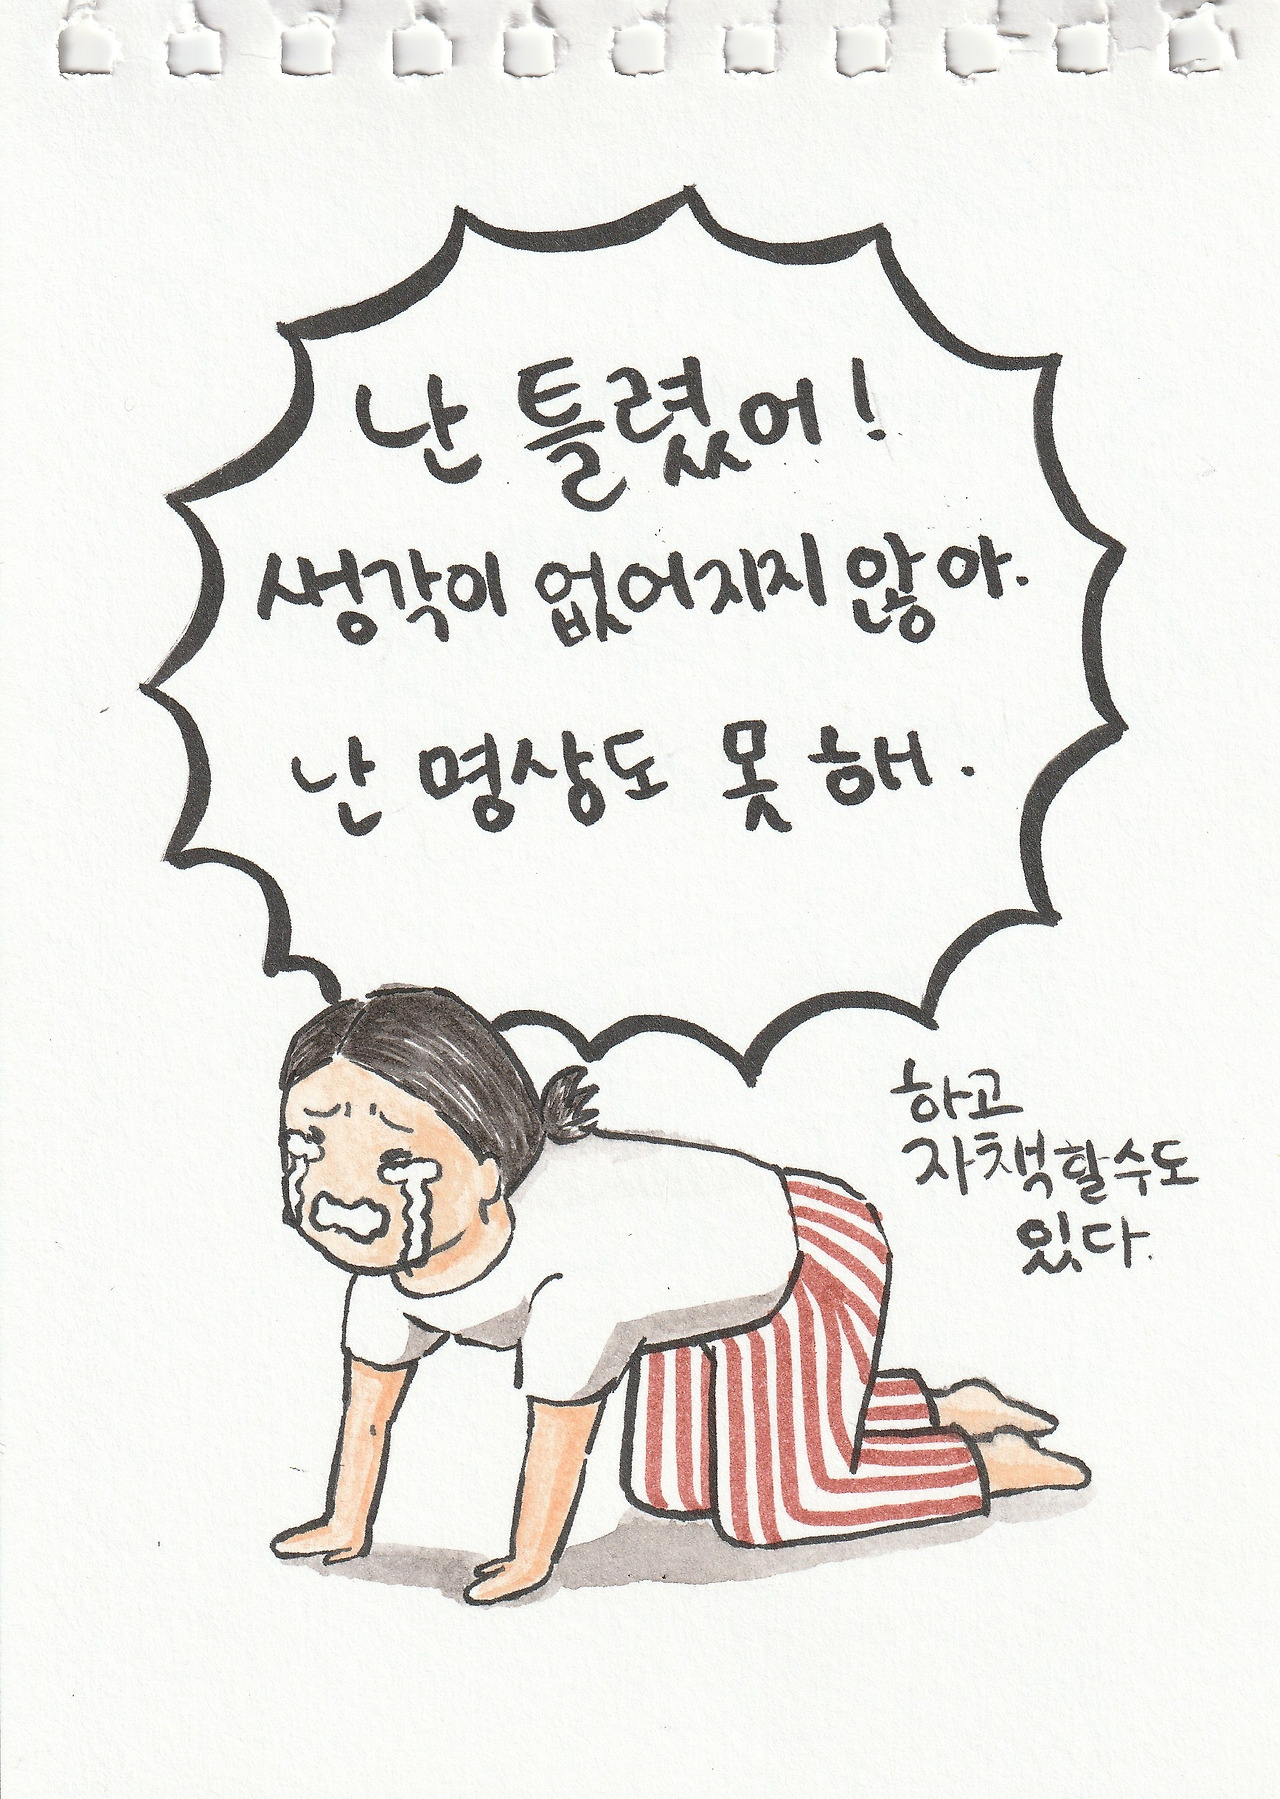 난 틀렸어!
생각이 없어지지 않아.
난 명상도 못 해.
하고
자책할수도
있다.